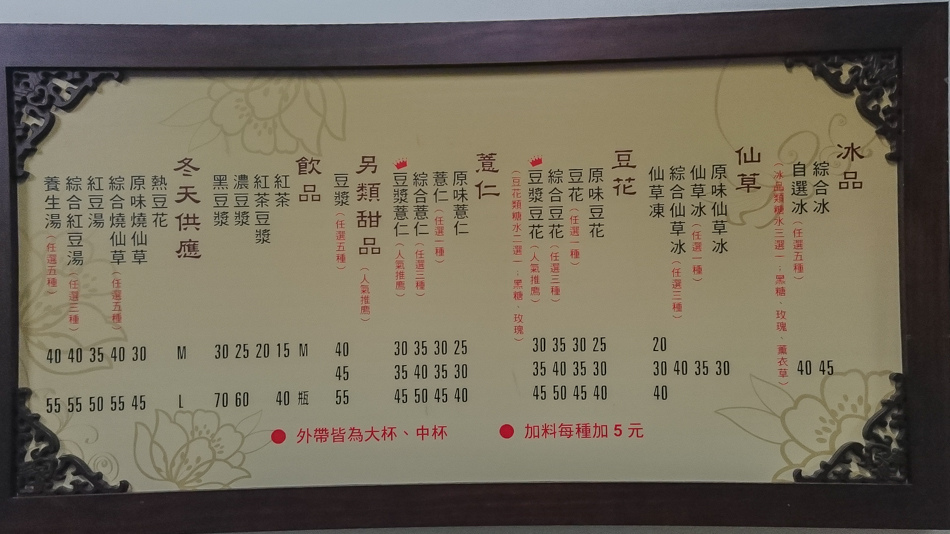 冰品
綜合冰 45
自選冰（任選五種） 40
（冰品類糖水三選一：黑糖．玫瑰．薰衣草）
仙草
原味仙草冰 30
仙草冰（任選一種） 35
綜合仙草冰（任選三種） 40
仙草凍 20 30 40
豆花
原味豆花 25 30 40
豆花（任選一種） 30 35 45
綜合豆花（任選三種） 35 40 50
豆漿豆花（人氣推薦） 30 35 45
（豆花類糖水二選一：黑糖．玫瑰）
薏仁
原味薏仁 25 30 40
薏仁（任選一種） 30 35 45
綜合薏仁（任選三種） 35 40 50
豆漿薏仁（人氣推薦） 30 35 45
另類甜品（人氣推薦）
豆漿（任選五種） 40 45 55
飲品 M 瓶
紅茶 15 40
紅茶豆漿 20
濃豆漿 25 60
黑豆漿 30 70
冬天供應 M L
熱豆花
原味燒仙草 30 45
綜合燒仙草（任選五種） 40 55
紅豆湯 35 50
綜合紅豆湯（任選三種） 40 55
養生湯（任選五種） 40 55
● 外帶皆為大杯、中杯
● 加料每種加 5 元